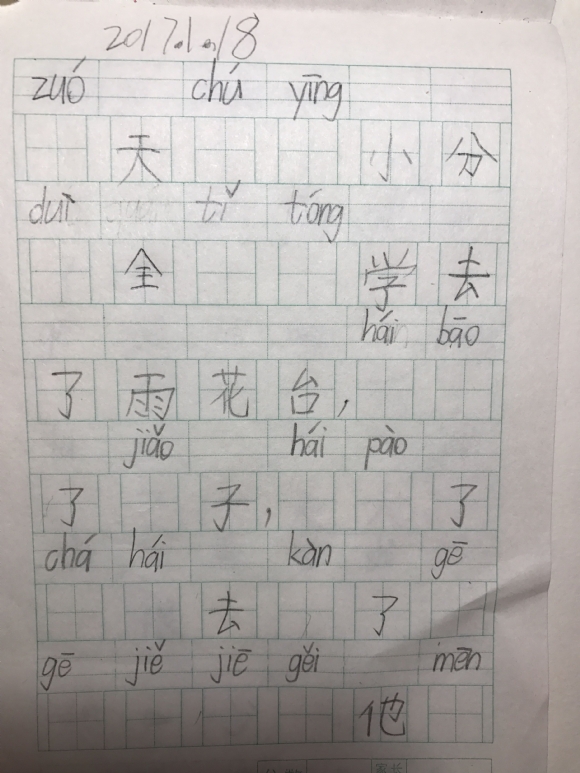 2017.1.18
zuó chú yīng
天 小 分
duì tǐ tóng
全 学 去
hái bāo
了 雨 花 台，
jiǎo hái pào
了 子， 了
chá hái kàn gē
去 了
gē jiě jiē gěi mēn
他